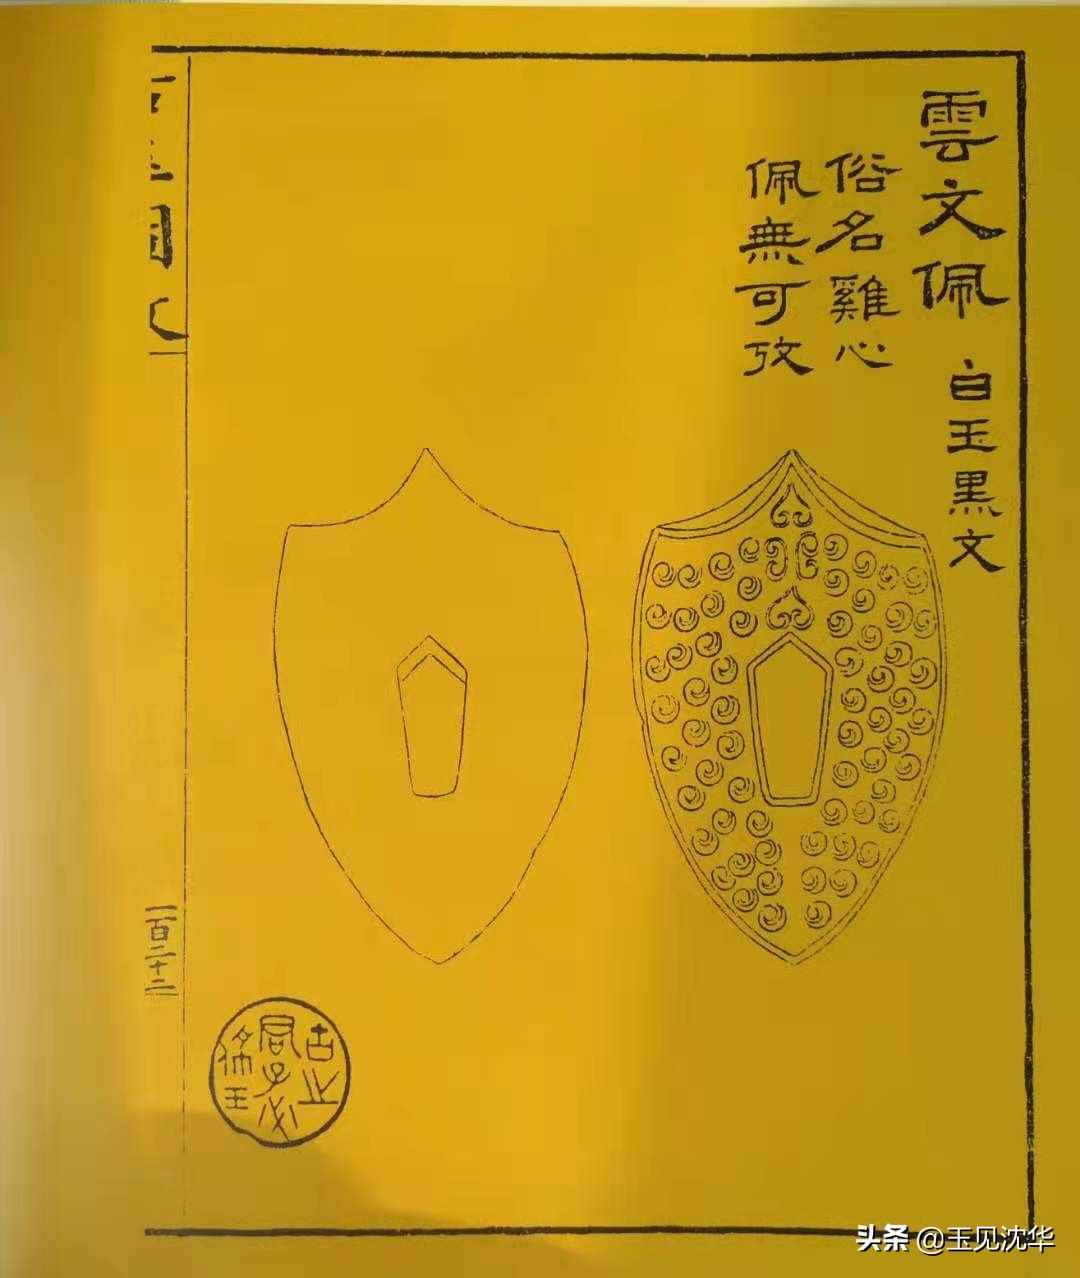 雲文佩 白玉黑文
俗名雞心
佩無可攷
一百二十二
古之
君子必
佩玉
头条 @玉见沈华